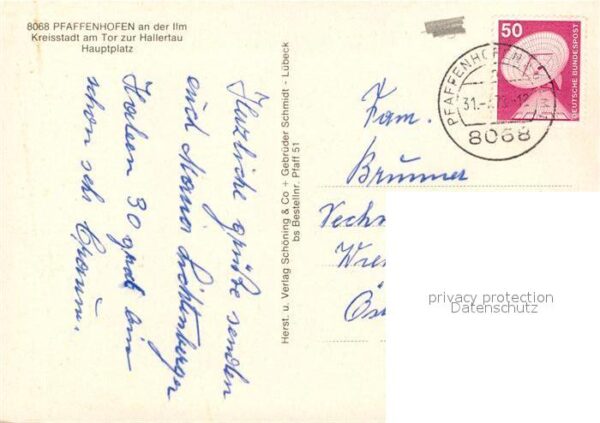 8068 PFAFFENHOFEN an der Ilm
Kreisstadt am Tor zur Hallertau
Hauptplatz
Herzliche grüße senden
eich Maria Lichtenberger
Haben 30 grad bin
schon sehr braun.
Herst. u. Verlag Schöning & Co + Gebrüder Schmidt - Lübeck
bs Bestellnr. Pfaff 51
50
DEUTSCHE BUNDESPOST
PFAFFENHOFEN
31.
8068
Fam.
Brunner
privacy protection
Datenschutz